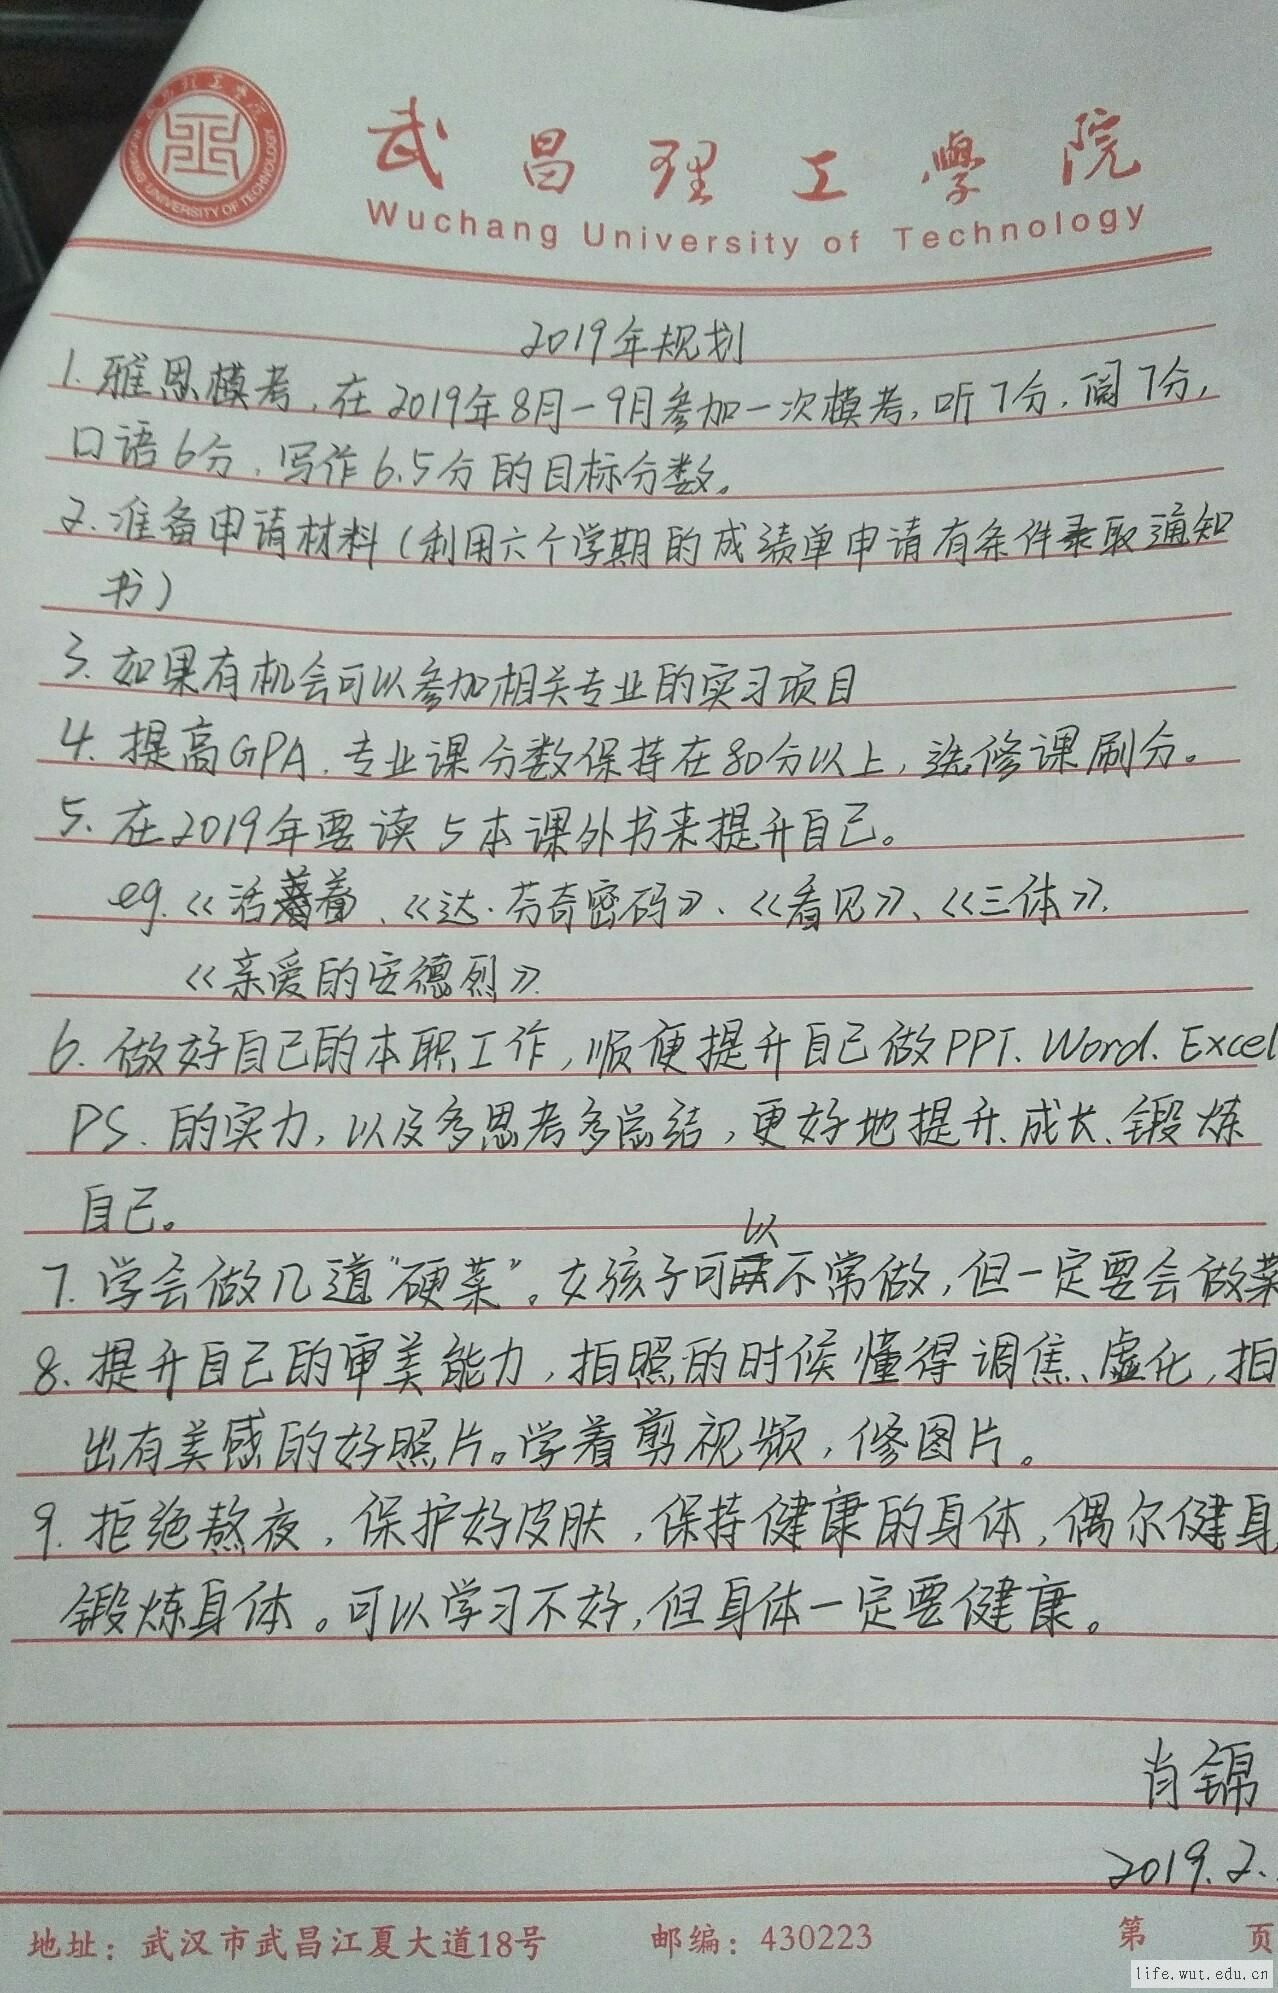 武昌理工學院
Wuchang University of Technology
2019年规划
1.雅思模考,在2019年8月-9月参加一次模考,听7分,阅7分,
口语6分,写作6.5分的目标分数。
2.准备申请材料(利用六个学期的成绩单申请有条件录取通知
书)
3.如果有机会可以参加相关专业的实习项目
4.提高GPA,专业课分数保持在80分以上,选修课刷分。
5.在2019年要读5本课外书来提升自己。
eg.《活着》、《达·芬奇密码》、《看见》、《三体》、
《亲爱的安德烈》.
6.做好自己的本职工作,顺便提升自己做PPT、Word、Excel
PS、的实力,以及多思考多总结,更好地提升、成长、锻炼
自己。
7.学会做几道“硬菜”。女孩子可以不常做,但一定要会做菜
8.提升自己的审美能力,拍照的时候懂得调焦、虚化,拍
出有美感的好照片。学着剪视频,修图片。
9.拒绝熬夜,保护好皮肤,保持健康的身体,偶尔健身
锻炼身体。可以学习不好,但身体一定要健康。
肖锦
2019.2.
地址:武汉市武昌江夏大道18号 邮编:430223 第 页
life.wut.edu.cn